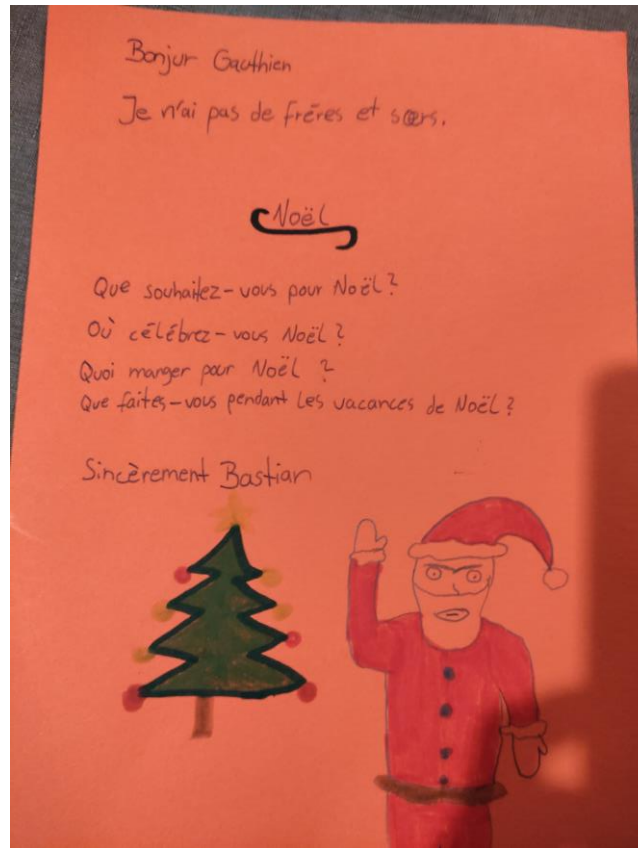 Bonjur Gauthien
Je n'ai pas de fréres et sœrs.
Noël
Que souhaitez-vous pour Noël?
Où célébrez-vous Noël?
Quoi manger pour Noël ?
Que faites-vous pendant les vacances de Noël?
Sincèrement Bastian